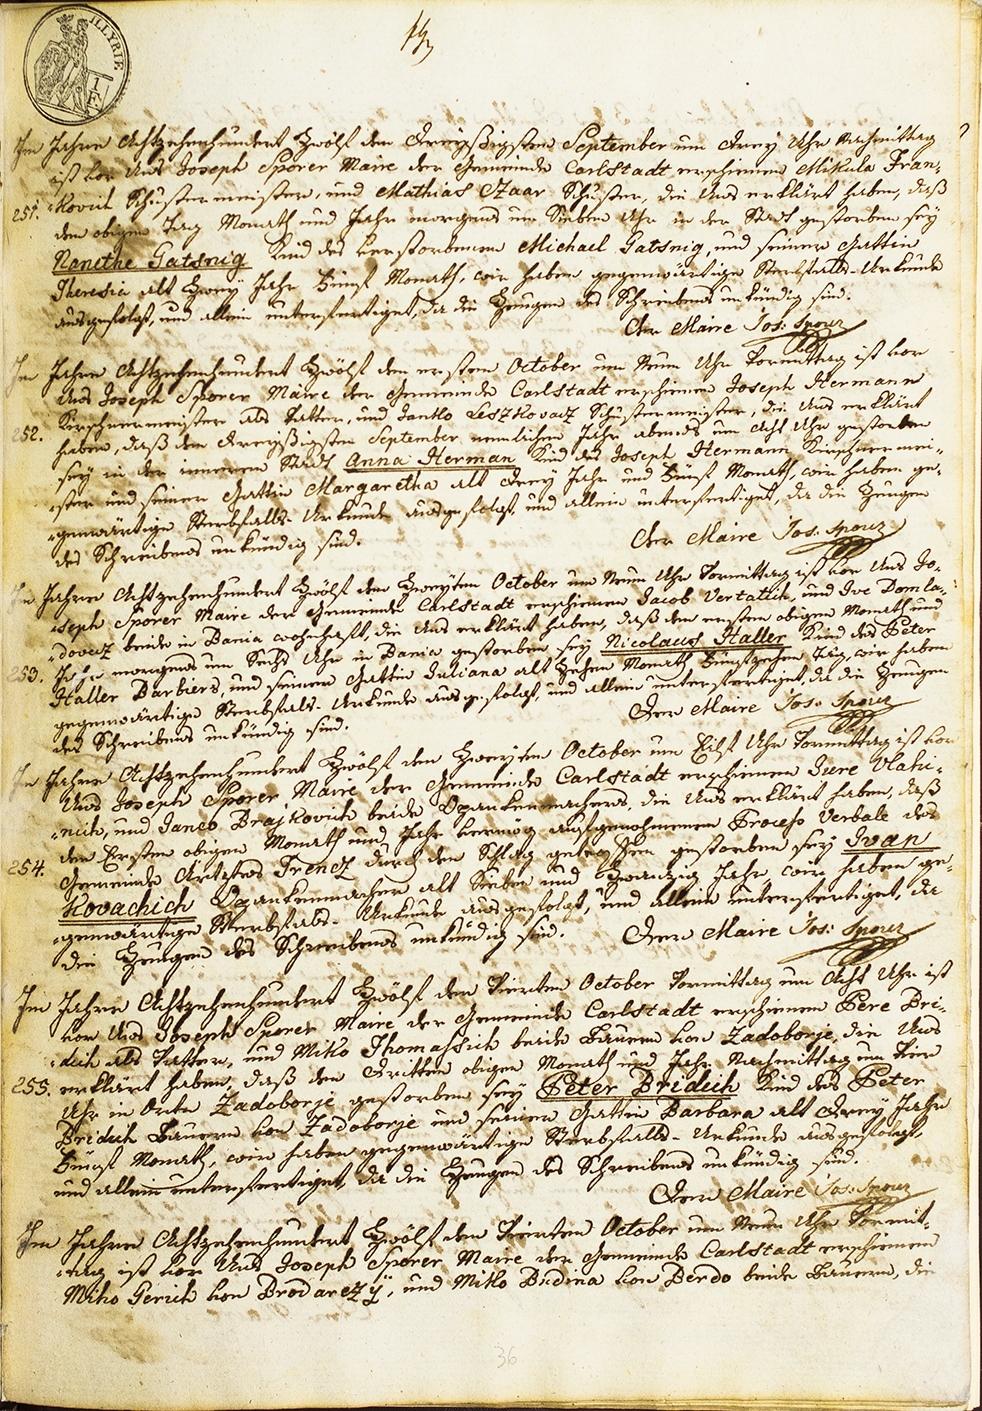 ILLYRIE
1
F
Im Jahre Achtzehenhundert Zwölf den Dreyßigsten September um Drey Uhr Nachmittag
ist vor Uns Joseph Sporer Maire der Gemeinde Carlstadt erschienen Mikula Fran-
251. -kovich Schustermeister, und Mathias Czaar Schuster, die Uns erklärt haben, daß
den obigen Tag Monath und Jahr morgens um Sieben Uhr in der Stadt gestorben sey
Nanethe Gatsnig Kind des verstorbenen Michael Gatsnig, und seiner Gattin
Theresia alt Zwey Jahr Fünf Monath, wir haben gegenwärtige Sterbfalls-Urkunde
ausgefolgt, und allein unterfertiget, da die Zeugen des Schreibens unkündig sind.
Der Maire Jos: Sporer
Im Jahre Achtzehenhundert Zwölf den ersten October um Neun Uhr Vormittag ist vor
Uns Joseph Sporer Maire der Gemeinde Carlstadt erschienen Joseph Hermann
252. Kirschnermeister als Vatter, und Janko Leszkovacz Schustermeister, die Uns erklärt
haben, daß den Dreyßigsten September nemlichen Jahr abends um Acht Uhr gestorben
sey in der inneren Stadt Anna Herman Kind des Joseph Hermann Kirschnermei-
-ster und seiner Gattin Margaretha alt Drey Jahr und Fünf Monath, wir haben ge-
-genwärtige Sterbfalls-Urkunde ausgefolgt, und allein unterfertiget, da die Zeugen
des Schreibens unkündig sind.
Der Maire Jos: Sporer
Im Jahre Achtzehenhundert Zwölf den Zweyten October um Neun Uhr Vormittag ist vor Uns Jo-
-seph Sporer Maire der Gemeinde Carlstadt erschienen Jacob Vertattih, und Ive Domla-
-dovacz beide in Bania wohnhaft, die Uns erklärt haben, daß den ersten obigen Monath und
253. Jahr morgens um Sechs Uhr in Bania gestorben sey Nicolaus Haller Kind des Peter
Haller Barbiers, und seiner Gattin Juliana alt Zehen Monath Fünfzehen Täg, wir haben
gegenwärtige Sterbfals-Urkunde ausgefolgt, und allein unterfertiget, da die Zeugen
des Schreibens unkündig sind.
Der Maire Jos: Sporer
Im Jahre Achtzehenhundert Zwölf den Zweyten October um Eilf Uhr Vormittag ist vor
Uns Joseph Sporer Maire der Gemeinde Carlstadt erschienen Jure Vlahi-
-nich, und Janco Brajkovich beide Opankenmachers, die Uns erklärt haben, daß
den Ersten obigen Monath und Jahr vermög aufgenohmenen Proceß Verbale des
254. Gemeinde Trencz durch den Schlag getroffen gestorben sey Ivan
Kovachich Opankenmacher alt Sieben und Zwanzig Jahr, wir haben ge-
-genwärtige Sterbfals-Urkunde ausgefolgt, und allein unterfertiget, da
die Zeugen des Schreibens unkündig sind.
Der Maire Jos: Sporer
Im Jahre Achtzehenhundert Zwölf den Vierten October Vormittag um Acht Uhr ist
vor Uns Joseph Sporer Maire der Gemeinde Carlstadt erschienen Pere Bri-
-dich als Vatter, und Miko Thomassich beide Bauern von Zadoborje, die Uns
255. erklärt haben, daß den Dritten obigen Monath und Jahr Nachmittag um Vier
Uhr in Orte Zadoborje gestorben sey Peter Bridich Kind des Peter
Bridich Bauern von Zadoborje und seiner Gattin Barbara alt Drey Jahr
Fünf Monath, wir haben gegenwärtige Sterbfalls-Urkunde ausgefolgt,
und allein unterfertiget, da die Zeugen des Schreibens unkündig sind.
Der Maire Jos: Sporer
Im Jahre Achtzehenhundert Zwölf den Vierten October um Neun Uhr Vormit-
-tag ist vor Uns Joseph Sporer Maire der Gemeinde Carlstadt erschienen
Miko Gerich von Brodarczy, und Mitto Budina von Berdo beide Bauern, die
36